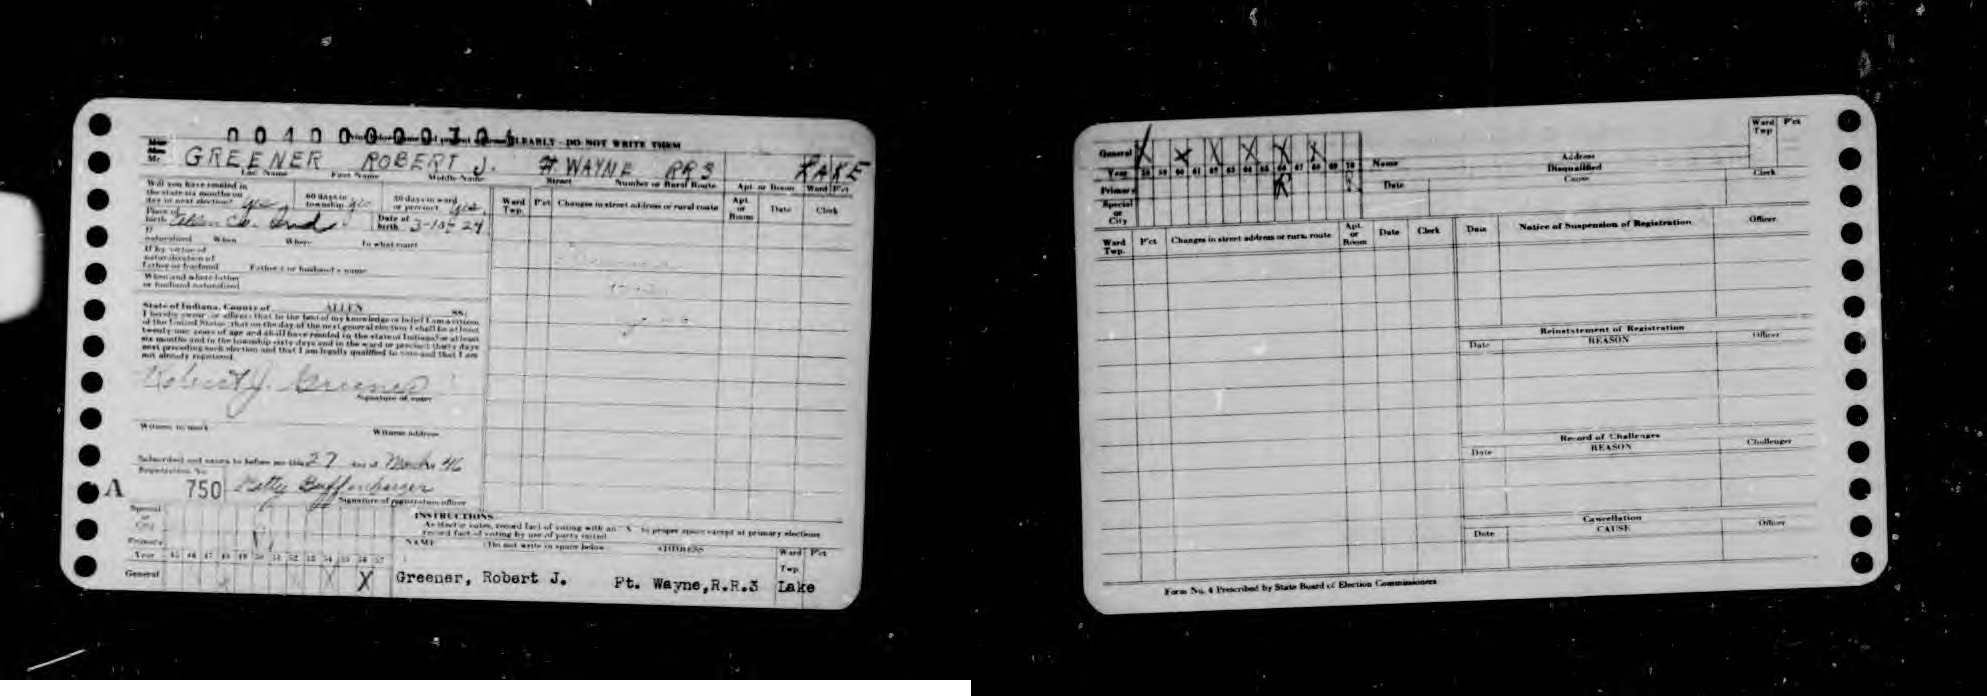 CLEARLY - DO NOT WRITE THEM
Mr. GREENER ROBERT J. Ft WAYNE RR3 LAKE
Last Name First Name Middle Name Street Number or Rural Route Apt. or Room Ward P'ct
Will you have resided in the state six months on day of next election? yes 60 days in township yes 30 days in ward or precinct yes
Place of birth Allen Co. Ind Date of birth 3-10-24
If naturalized When Where In what court
If by virtue of naturalization of father or husband Father's or husband's name
When and where father or husband naturalized
Ward Twp. P'ct Changes in street address or rural route Apt. or Room Date Clerk
State of Indiana, County of ALLEN SS:
I hereby swear, or affirm, that to the best of my knowledge or belief I am a citizen
of the United States; that on the day of the next general election I shall be at least
twenty-one years of age and shall have resided in the state of Indiana for at least
six months and in the township sixty days and in the ward or precinct thirty days
next preceding such election and that I am legally qualified to vote and that I am
not already registered.
Robert J. Greener
Signature of voter
Witness to mark Witness address
Subscribed and sworn to before me this 27 day of March 46
Registration No. A 750 Betty Buffenbarger
Signature of registration officer
Special or City
Primary
Year 45 46 47 48 49 50 51 52 53 54 55 56 57
General X X
INSTRUCTIONS
As elector votes, record fact of voting with an "X" in proper space except at primary elections
record fact of voting by use of party initial
NAME (Do not write in space below ADDRESS Ward Twp. P'ct
Greener, Robert J. Ft. Wayne, R.R.3 Lake
General X X X X X X
Year 58 59 60 61 62 63 64 65 66 67 68 69 70
Primary R R
Special or City
Name Address Ward Twp P'ct
Disqualified
Date Cause Clerk
Ward Twp. P'ct Changes in street address or rural route Apt. or Room Date Clerk
Date Notice of Suspension of Registration Officer
Reinstatement of Registration
Date REASON Officer
Record of Challenges
Date REASON Challenger
Cancellation
Date CAUSE Officer
Form No. 4 Prescribed by State Board of Election Commissioners